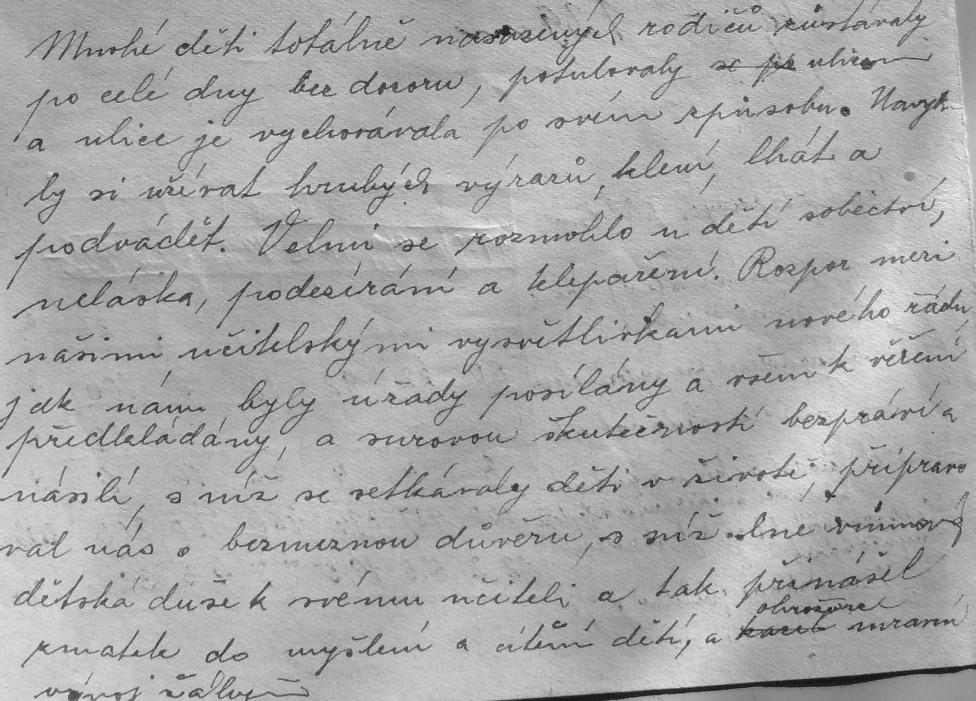 Mnohé děti totálně nasazených rodičů zůstávaly
po celé dny bez dozoru, potulovaly se po ulicem
a ulice je vychovávala po svém způsobu. Navyk-
ly si užívat hrubých výrazů, klení, lhát a
podvádět. Velmi se rozmohlo u dětí sobectví,
neláska, podezírání a klepaření. Rozpor mezi
našimi učitelskými vysvětlivkami nového řádu,
jak nám byly úřady posílány a všem k věření
předkládány, a surovou skutečností bezpráví a
násilí, s níž se setkávaly děti v životě, připravo
val nás o bezmeznou důvěru, s níž lne
dětská duše k svému učiteli a tak přinášel
zmatek do myšlení a cítění dětí, a kazil ohrožoval mravní
vývoj